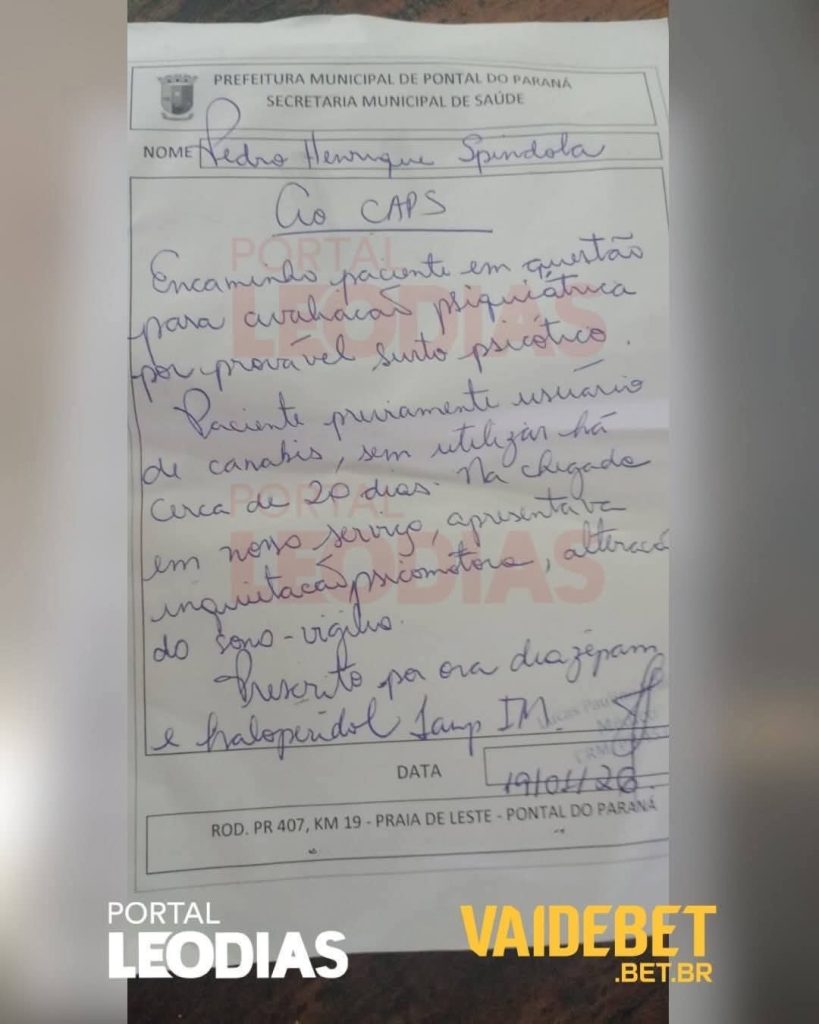 PREFEITURA MUNICIPAL DE PONTAL DO PARANÁ
SECRETARIA MUNICIPAL DE SAÚDE
NOME Pedro Henrique Spindola
Ao CAPS
Encaminho paciente em questão
para avaliação psiquiátrica
por provável surto psicótico.
Paciente previamente usuário
de canabis, sem utilizar há
cerca de 20 dias. Na chegada
em nosso serviço, apresentava
inquietação psicomotora, alteração
do sono-vigília.
Prescrito por ora diazepam
e haloperidol 1amp IM.
DATA
19/01/26
ROD. PR 407, KM 19 - PRAIA DE LESTE - PONTAL DO PARANÁ
PORTAL
LEODIAS
PORTAL
LEODIAS
PORTAL
LEODIAS
VAIDEBET
.BET.BR